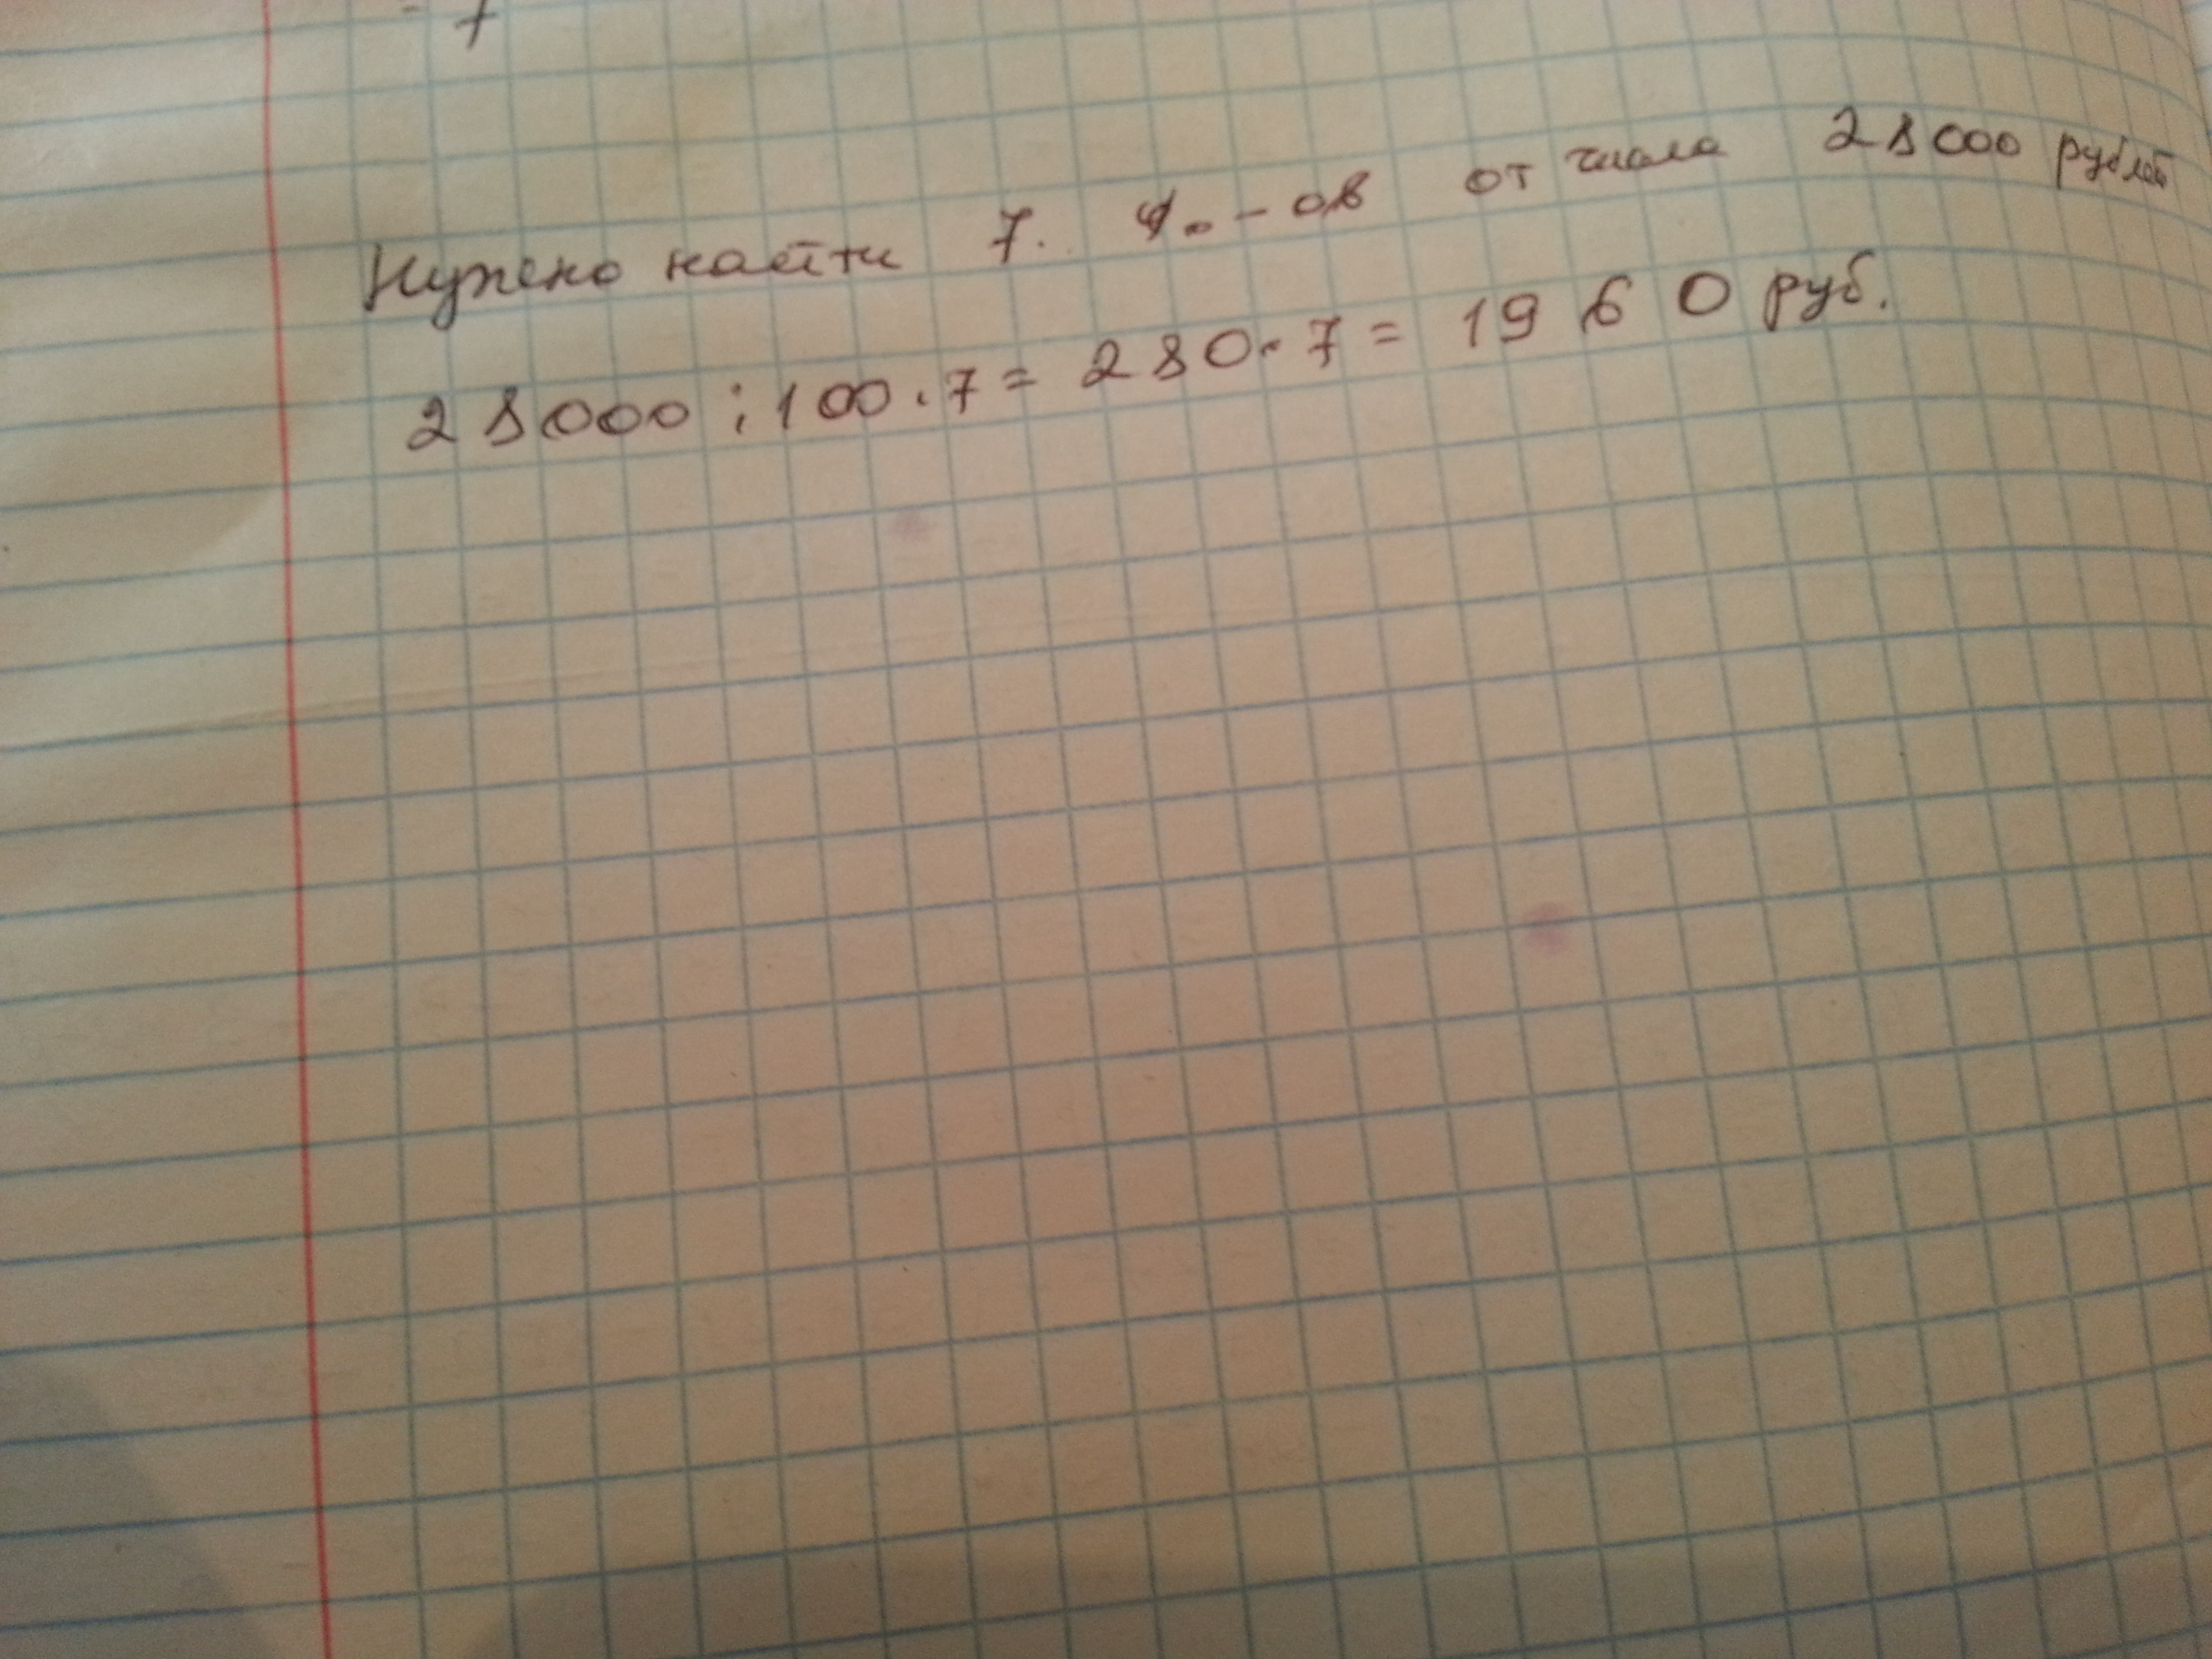 7
Нужно найти 7. %-ов от числа 28000 рублей
28000 : 100 · 7 = 280 · 7 = 1960 руб.